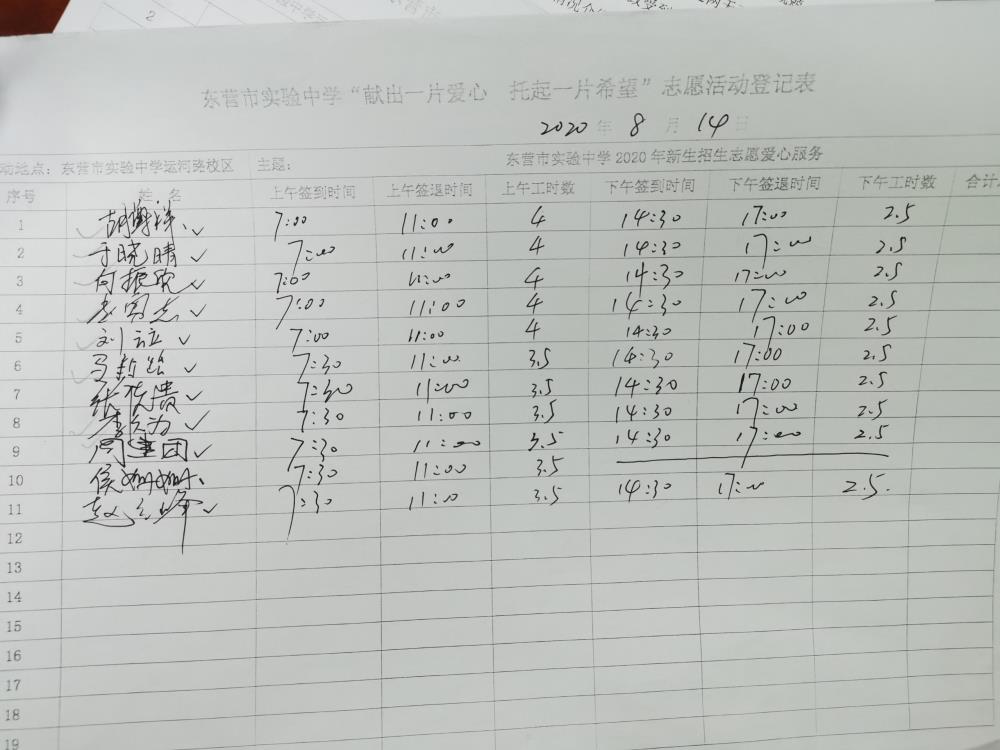 2
东营市实验中学“献出一片爱心 托起一片希望”志愿活动登记表
2020 年 8 月 14 日
动地点：东营市实验中学运河路校区 主题： 东营市实验中学2020年新生招生志愿爱心服务
序号 姓 名 上午签到时间 上午签退时间 上午工时数 下午签到时间 下午签退时间 下午工时数 合计
1 7:00 11:00 4 14:30 17:00 2.5
2 于晓晴 7:00 11:00 4 14:30 17:00 2.5
3 7:00 11:00 4 14:30 17:00 2.5
4 7:00 11:00 4 14:30 17:00 2.5
5 刘立 7:00 11:00 4 14:30 17:00 2.5
6 7:30 11:00 3.5 14:30 17:00 2.5
7 7:30 11:00 3.5 14:30 17:00 2.5
8 7:30 11:00 3.5 14:30 17:00 2.5
9 周建团 7:30 11:00 3.5 14:30 17:00 2.5
10 侯姗姗 7:30 11:00 3.5
11 7:30 11:00 3.5 14:30 17:00 2.5
12
13
14
15
16
17
18
19